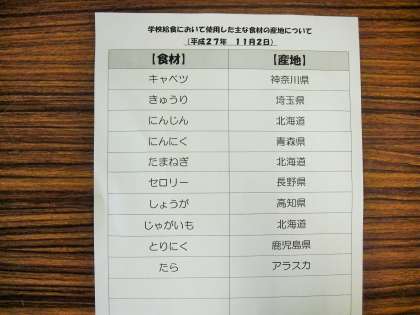 学校給食において使用した主な食材の産地について
(平成27年 11月2日)
【食材】 【産地】
キャベツ 神奈川県
きゅうり 埼玉県
にんじん 北海道
にんにく 青森県
たまねぎ 北海道
セロリー 長野県
しょうが 高知県
じゃがいも 北海道
とりにく 鹿児島県
たら アラスカ